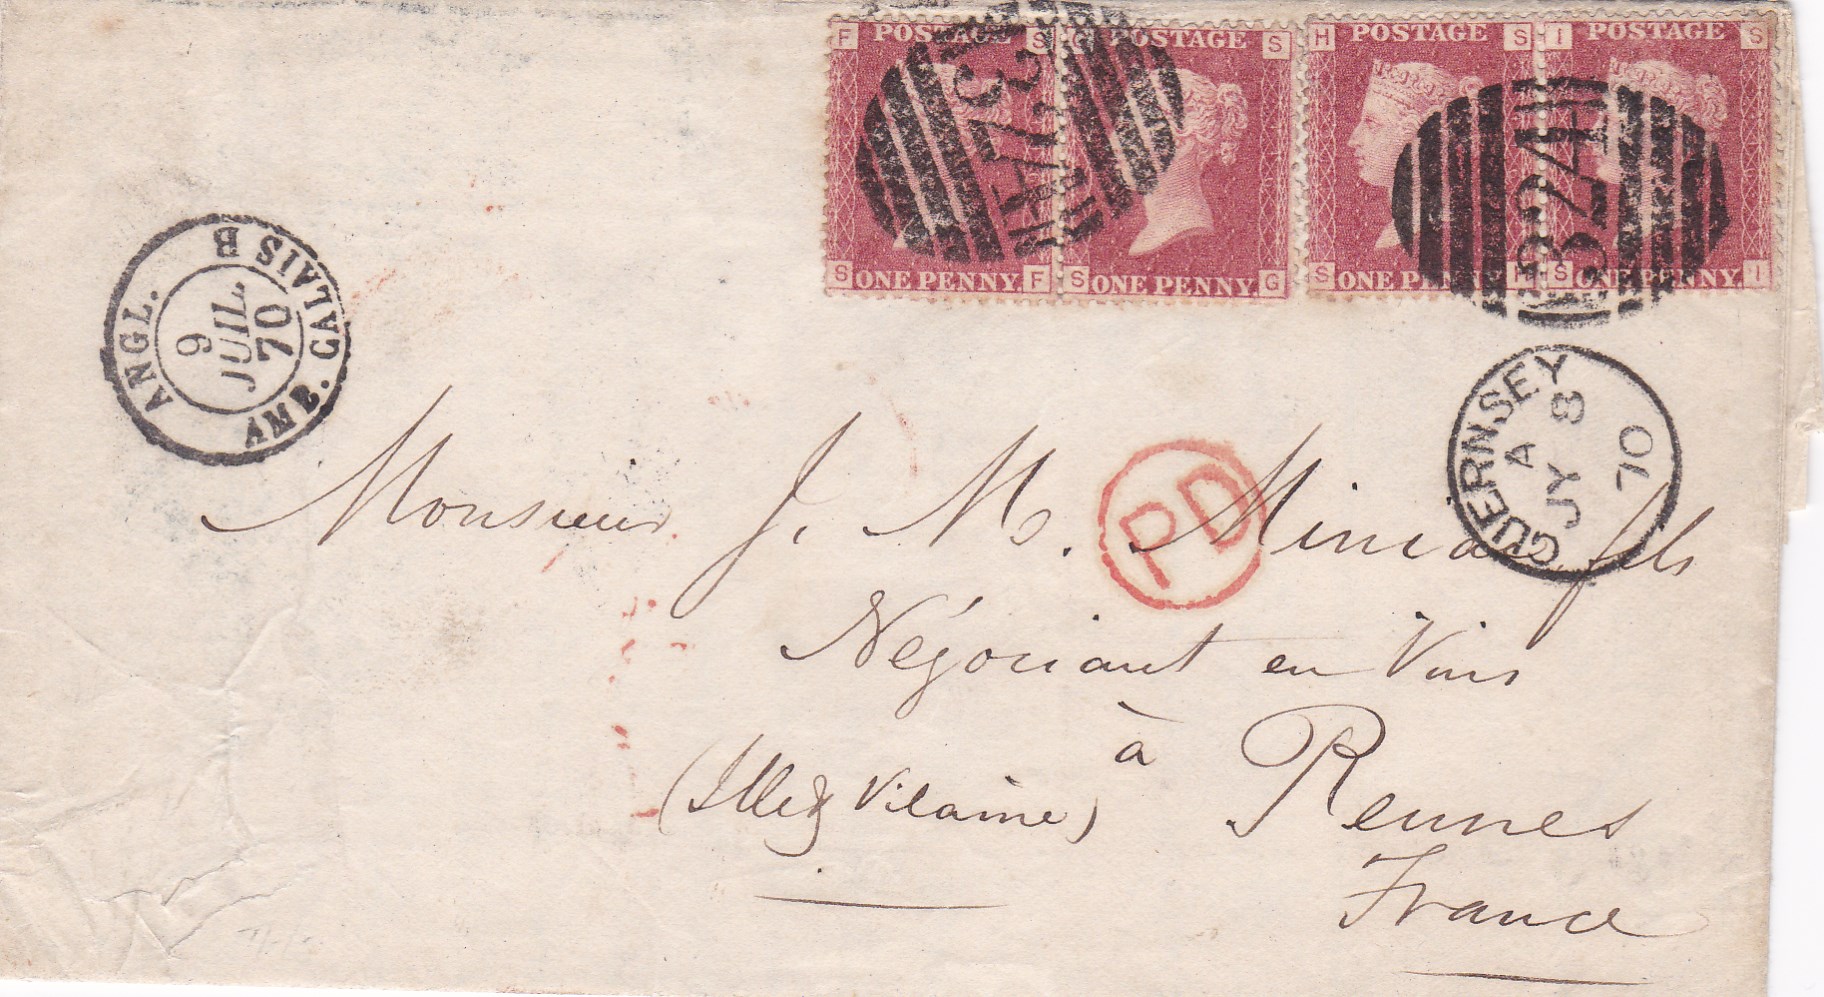 F POSTAGE S
G POSTAGE S
H POSTAGE S
I POSTAGE S
324
324
S ONE PENNY. F
S ONE PENNY. G
S ONE PENNY H
S ONE PENNY. I
ANGL. AMB. CALAIS B
9
JUIL.
70
GUERNSEY
A
JY 8
70
PD
Monsieur J. M. fils
Négociant en Vins
à Rennes
(Ille & Vilaine)
France